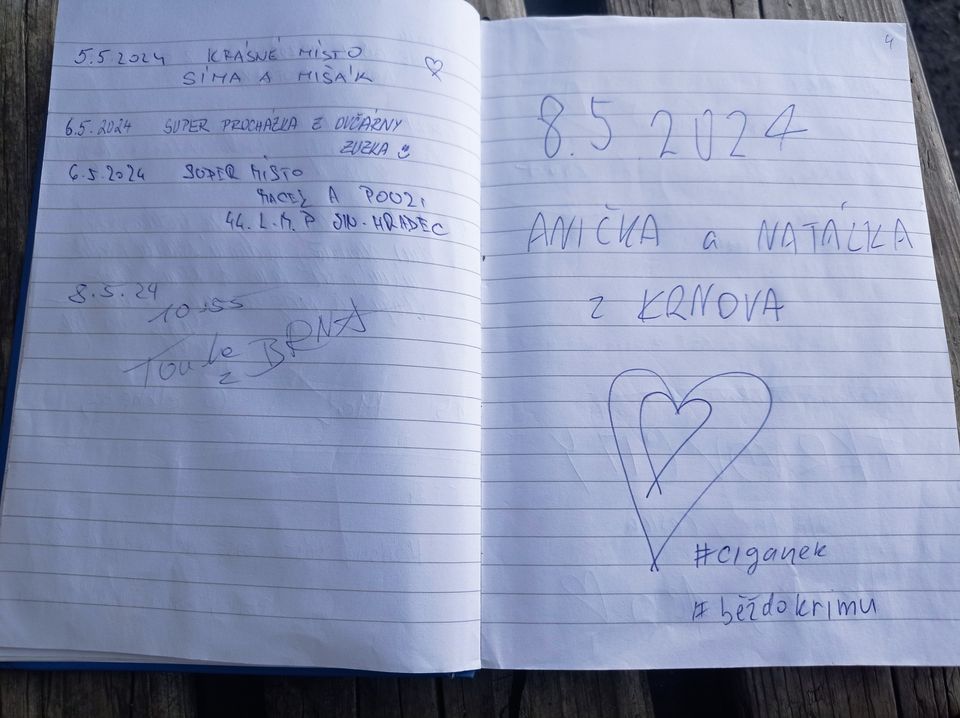 5.5.2024 KRÁSNÉ MÍSTO
SIMA A MIŠÁK
6.5.2024 SUPER PROCHÁZKA Z OVČÁRNY
ZUZKA
6.5.2024 SUPER MÍSTO
A
44. L.M.P JIN. HRADEC
8.5.24
10:55
z BRNA
4
8.5.2024
ANIČKA a NATÁLKA
z KRNOVA
#ciganek
#běždokrimu